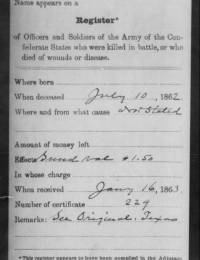 Name appears on a
Register*
of Officers and Soldiers of the Army of the Con-
federate States who were killed in battle, or who
died of wounds or disease.
Where born
When deceased July 10, 1862
Where and from what cause not Stated
Amount of money left
Effects Sund val $1.50
In whose charge
When received Jany 16, 1863
Number of certificate 229
Remarks: See Original. Texas
* This register appears to have been compiled in the Adjutant